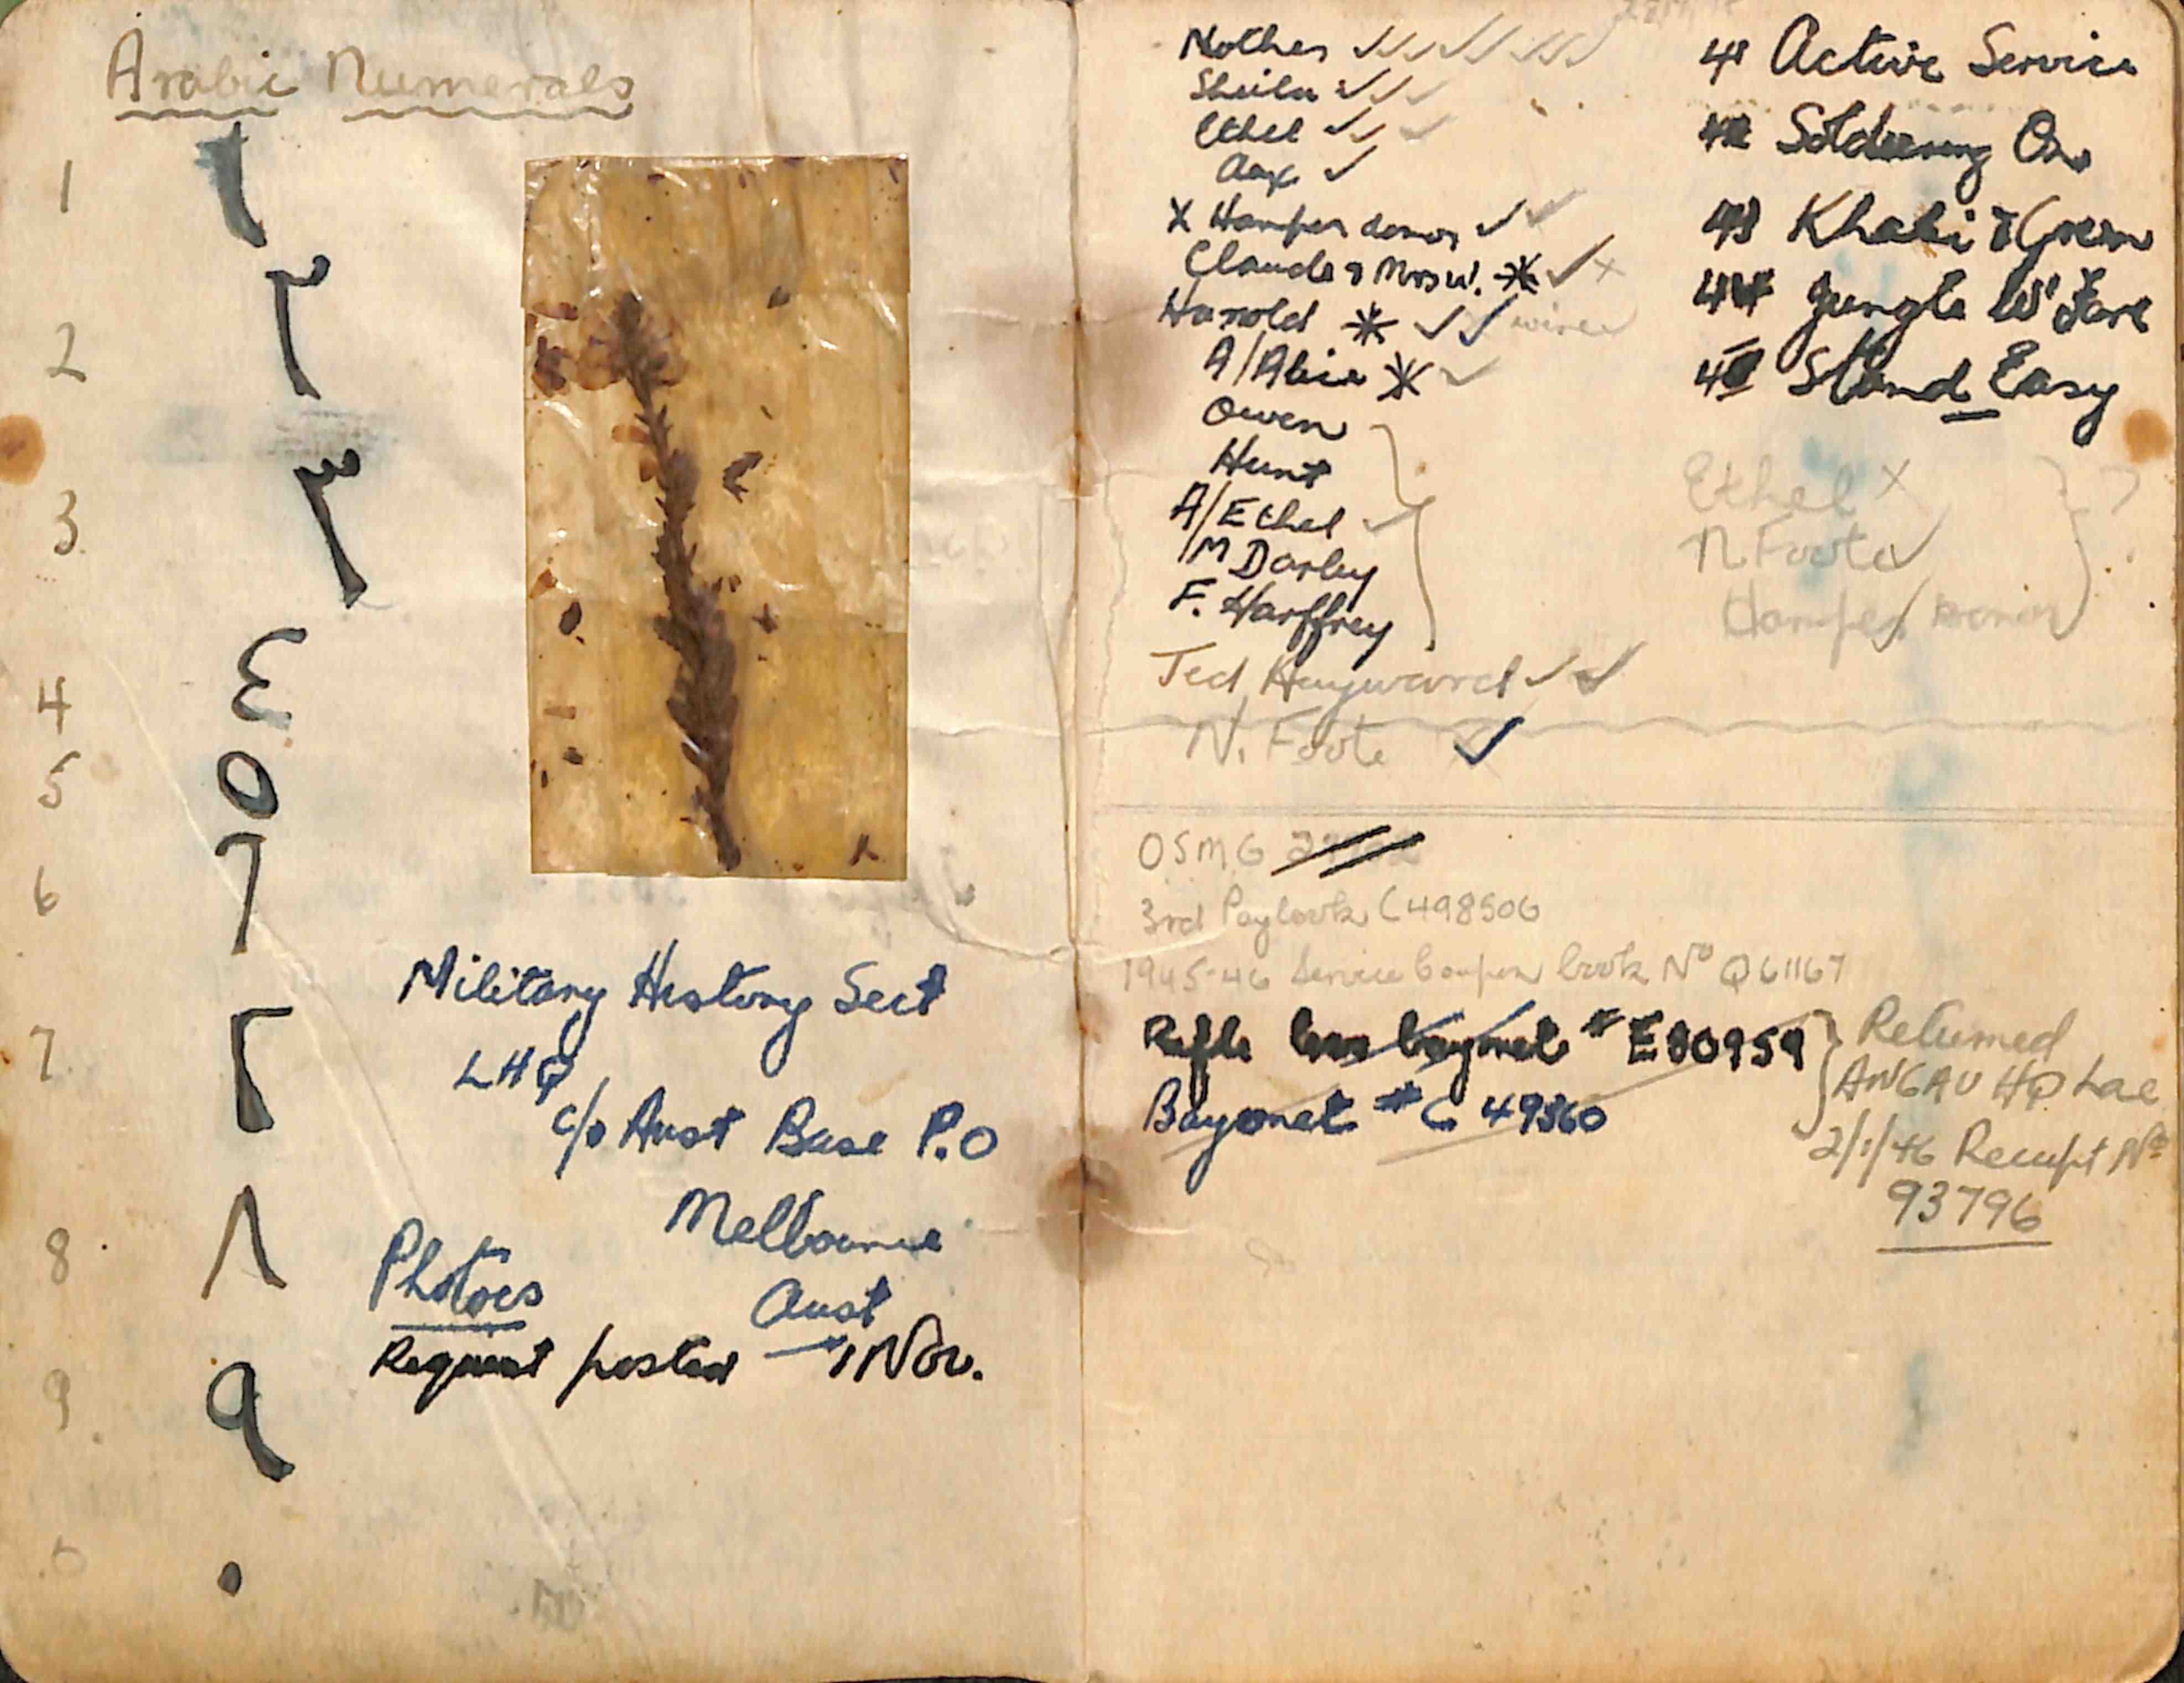 Arabic Numerals
1 ١
2 ٢
3 ٣
4 ٤
5 ٥
6 ٦
7
8 ٨
9 ٩
0 ٠
Military History Sect
LHQ
c/o Aust Base P.O
Melbourne
Aust
Photos
Request posted 1 Nov.
Mother ✓✓✓✓✓✓✓✓
Sheila ✓✓✓
Ethel ✓✓✓
✓
X Hamper donor ✓✓
Claude & Mrs W. * ✓ x
Harold * ✓✓ wire
A/Alice * ✓
Owen
Hunt
A/Ethel ✓
M Darley
F. Harffrey
Ted Hayward ✓✓
N. Foote ✓
41 Active Service
42 Soldiering On
43 Khaki & Green
44 Jungle W'fare
Stand Easy
Ethel x
N Foote ✓
Hamper Donor
?
OSMG
3rd Paybook C498506
1945-46 Service Coupon book Nº Q61167
Rifle less bayonet # E80959
Bayonet # C 49360
Returned
ANGAU HQ Lae
2/1/46 Receipt Nº
93796